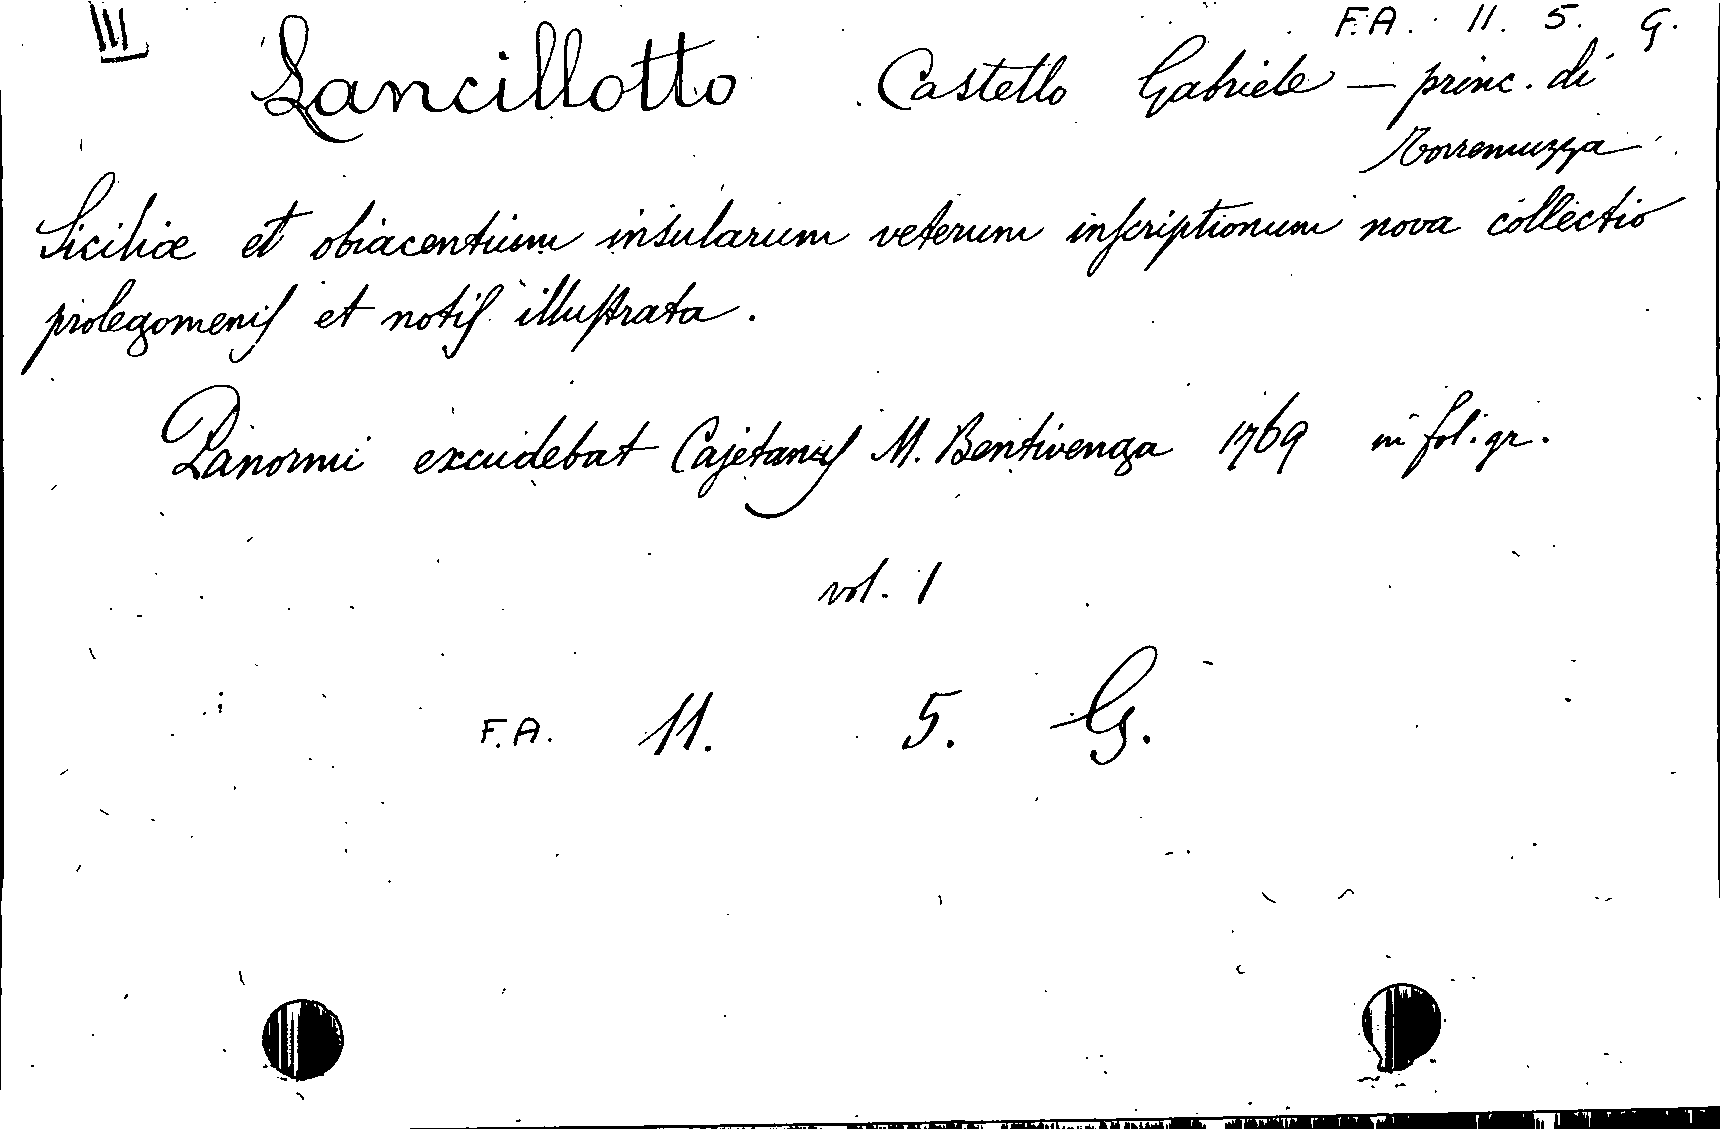 III F.A. 11. 5. G.
Lancillotto Castello Gabriele — princ. di
Torremuzza
Siciliæ et obiacentium insularum veterum inscriptionum nova collectio
prolegomenis et notis illustrata.
Panormi excudebat Cajetanus M. Bentivenga 1769 in fol. gr.
vol. 1
F.A. 11. 5. G.